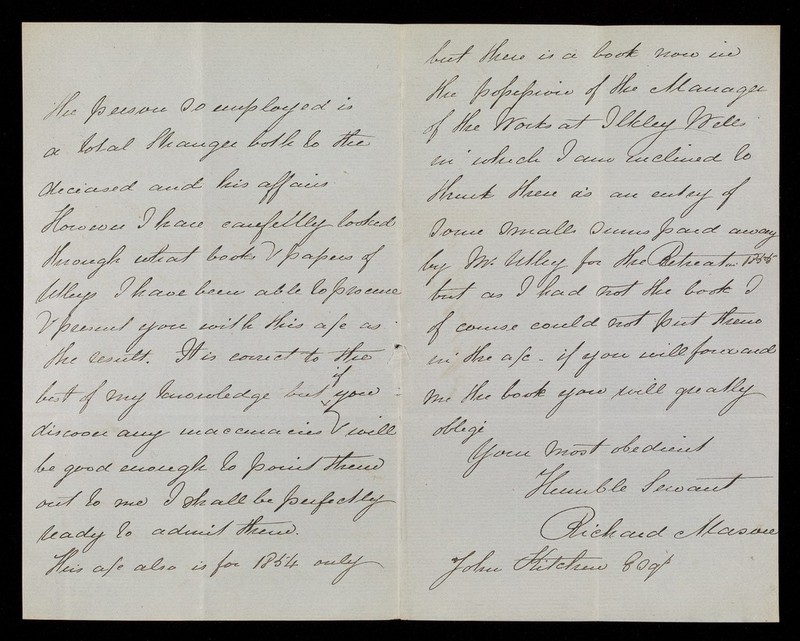 the person so employed is
a total Stranger both to the
deceased and his affairs
However I have carefully looked
through what books & papers of
Utleys I have been able to procure
& present you with this a/c as
the result. It is correct to the
best of my knowledge but if you
discover any inaccuracies & will
be good enough to point them
out to me I shall be perfectly
ready to admit them.
This a/c also is for 1854 only
but there is a book now in
the possession of the Manager
of the Works at Ilkley Wells
in which I am inclined to
think there is an entry of
some small sums paid away
by Mr. Utley for the Retreat in 1855
but as I had not the book I
of course could not put them
in the a/c - if you will forward
me the book you will greatly
oblige
Your most obedient
Humble Servant
Richard Mason
John Kitchen Esqr